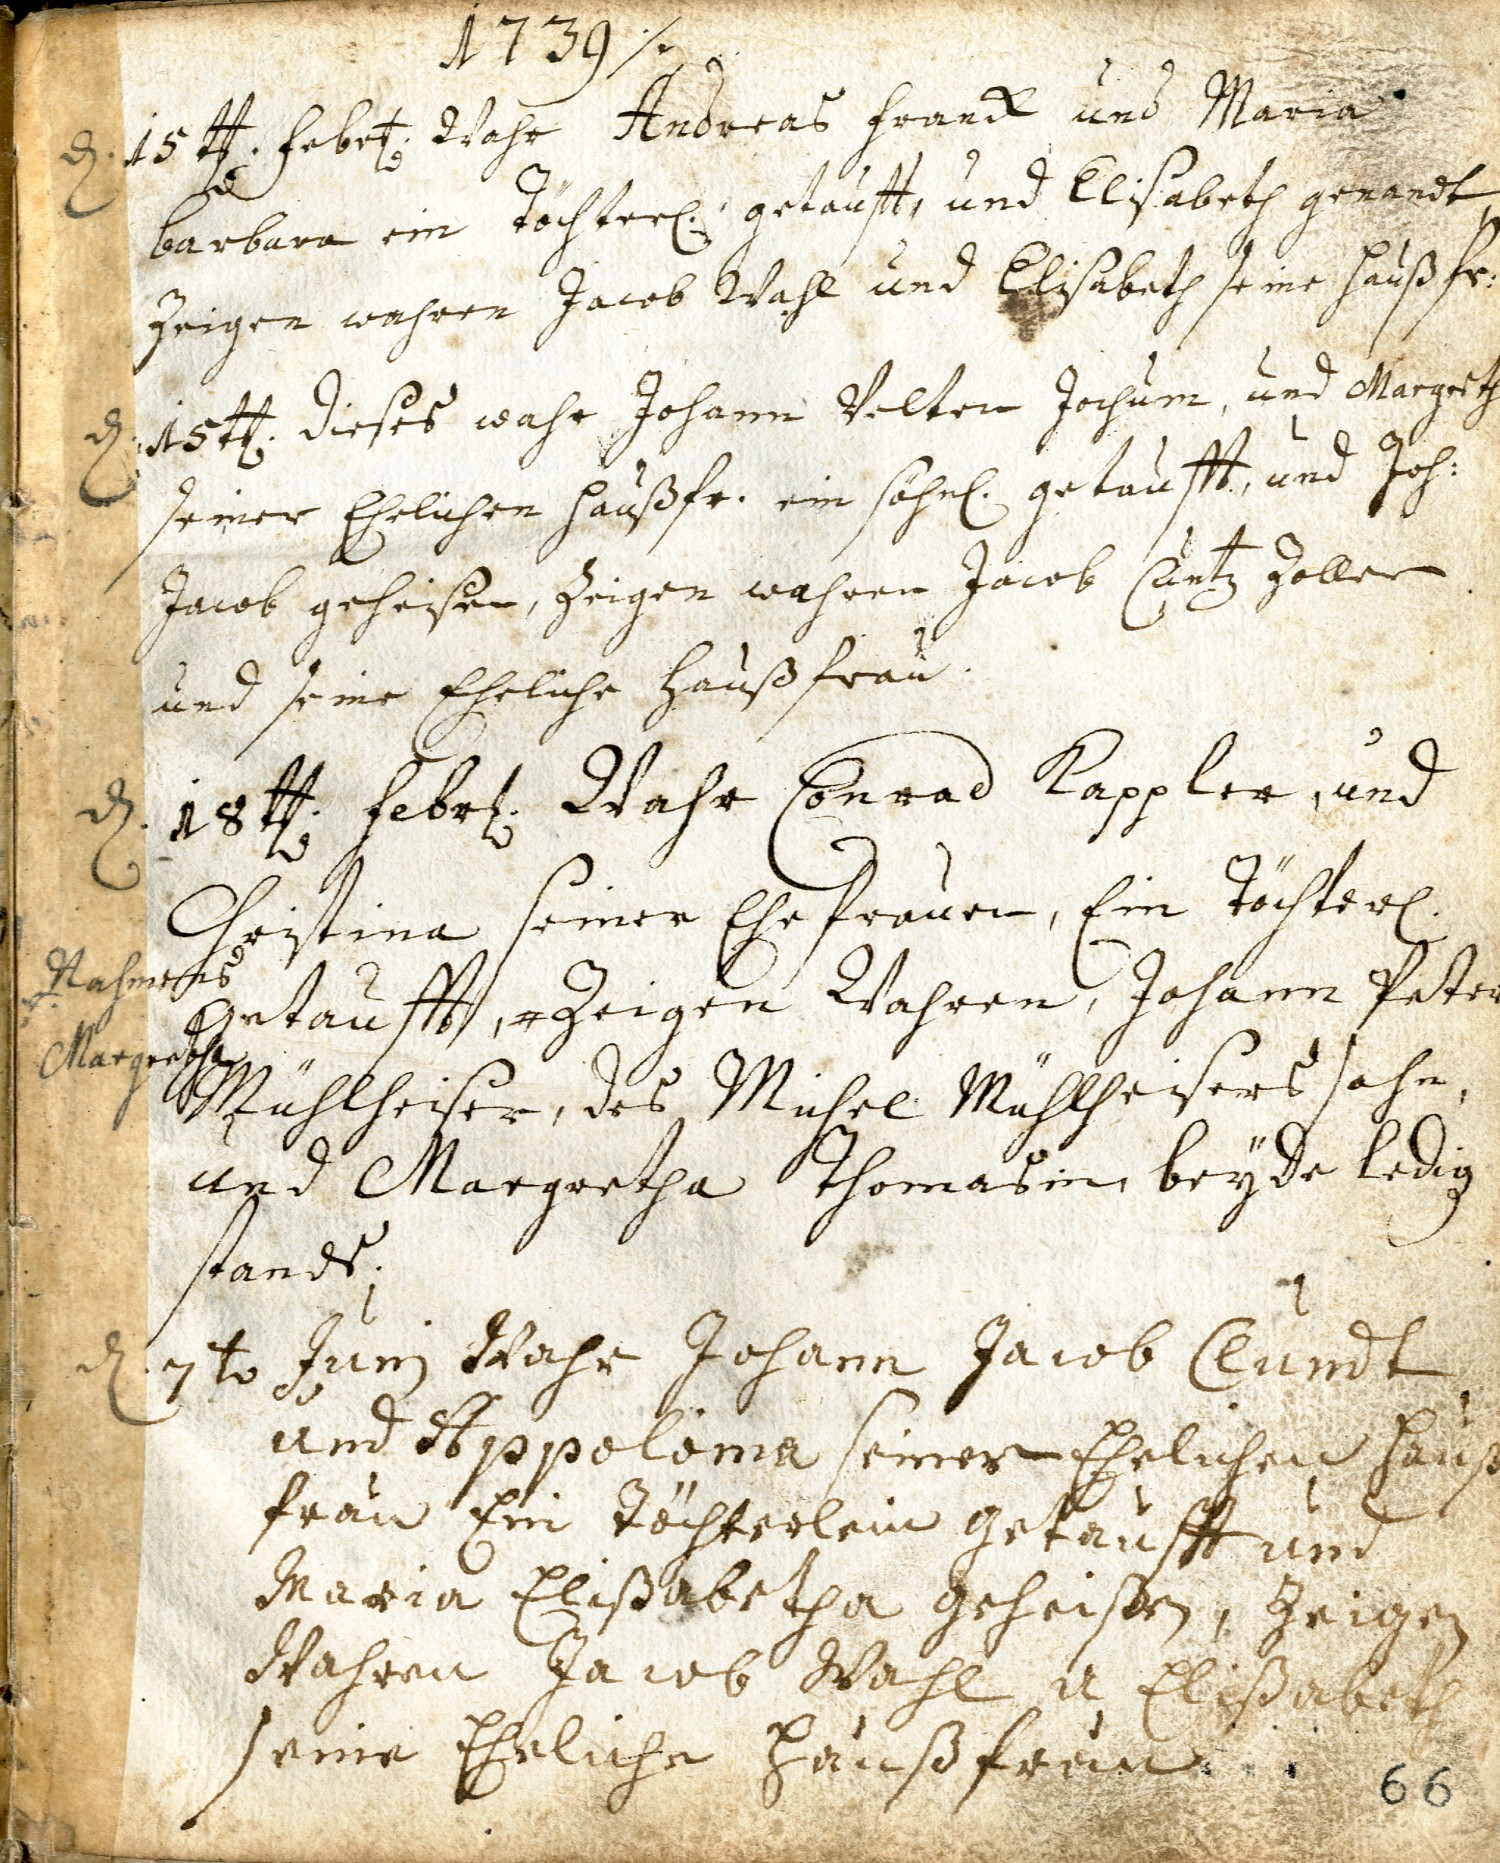 1739 /.
d. 15tt. febr. Wahr Andreas franck und Maria
barbara ein Töchterl. getaufft, und Elisabeth genandt,
Zeigen wahren Jacob Wahl und Elisabeth seine haußfr:
d. 15tt. dieses wahr Johann Velten Jochum, und Margreth
seiner Ehelichen haußfr. ein söhnl. getaufft, und Joh:
Jacob geheisen, Zeigen wahren Jacob Cuntz Zoller
und seine Eheliche Haußfrau.
d. 18tt. febr. Wahr Conrad Kappler, und
Christina seiner Ehefrauen, Ein Töchterl.
Nahmens
Margretha
getaufft, Zeigen Wahren, Johann Peter
Mühlheiser, des Michel Mühlheisers sohn,
und Margretha Thomasin, beÿde ledig
stands.
d. 7te Junij Wahr Johann Jacob Cundt
und Appolonia seiner Ehelichen Hauß
frau Ein Töchterlein getaufft und
Maria Elißabetha geheisen, Zeigen
Wahren Jacob Wahl u Elißabeth
seine Eheliche Haußfrau
66